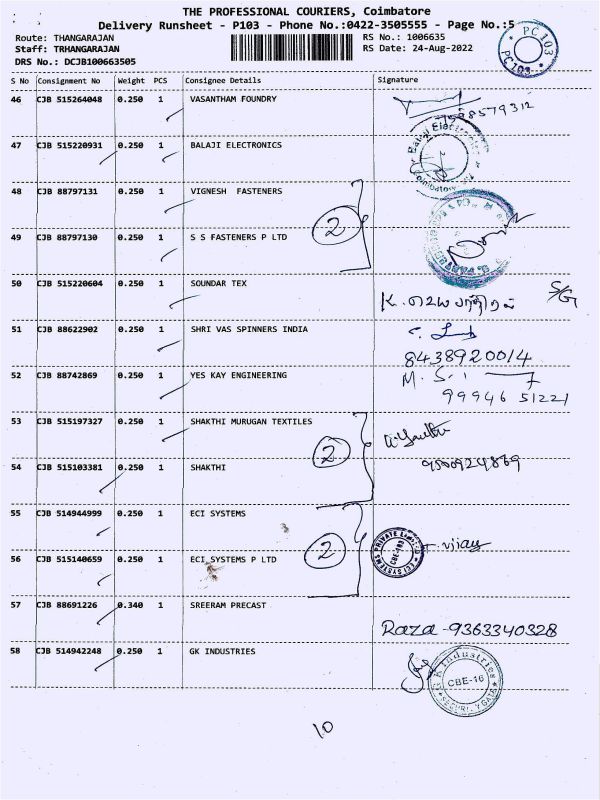 THE PROFESSIONAL COURIERS, Coimbatore
Delivery Runsheet - P103 - Phone No.:0422-3505555 - Page No.:5
Route: THANGARAJAN
RS No.: 1006635
Staff: TRHANGARAJAN
RS Date: 24-Aug-2022
DRS No.: DCJB100663505
PC 103
PC 103
S No Consignment No Weight PCS Consignee Details Signature
46 CJB 515264048 0.250 1 VASANTHAM FOUNDRY
47 CJB 515220931 0.250 1 BALAJI ELECTRONICS
Balaji Electronics
Coimbatore
48 CJB 88797131 0.250 1 VIGNESH FASTENERS
2
49 CJB 88797130 0.250 1 S S FASTENERS P LTD
50 CJB 515220604 0.250 1 SOUNDAR TEX
S/G
51 CJB 88622902 0.250 1 SHRI VAS SPINNERS INDIA
8438920014
52 CJB 88742869 0.250 1 YES KAY ENGINEERING
99946 51221
53 CJB 515197327 0.250 1 SHAKTHI MURUGAN TEXTILES
2
54 CJB 515103381 0.250 1 SHAKTHI
9500924869
55 CJB 514944999 0.250 1 ECI SYSTEMS
2
ECI SYSTEMS PRIVATE LIMITED
CBE-103
T. vijay
56 CJB 515140659 0.250 1 ECI SYSTEMS P LTD
57 CJB 88691226 0.340 1 SREERAM PRECAST
Raza - 9363340328
58 CJB 514942248 0.250 1 GK INDUSTRIES
G K Industries
CBE-16
SECURITY GATE
10